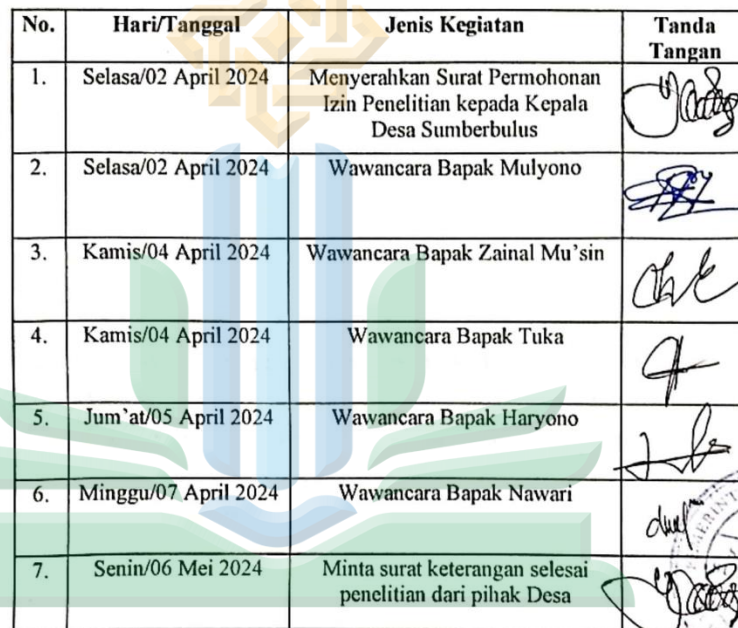 No. Hari/Tanggal Jenis Kegiatan Tanda
Tangan
1. Selasa/02 April 2024 Menyerahkan Surat Permohonan
Izin Penelitian kepada Kepala
Desa Sumberbulus
2. Selasa/02 April 2024 Wawancara Bapak Mulyono
3. Kamis/04 April 2024 Wawancara Bapak Zainal Mu'sin
4. Kamis/04 April 2024 Wawancara Bapak Tuka
5. Jum'at/05 April 2024 Wawancara Bapak Haryono
6. Minggu/07 April 2024 Wawancara Bapak Nawari
7. Senin/06 Mei 2024 Minta surat keterangan selesai
penelitian dari pihak Desa